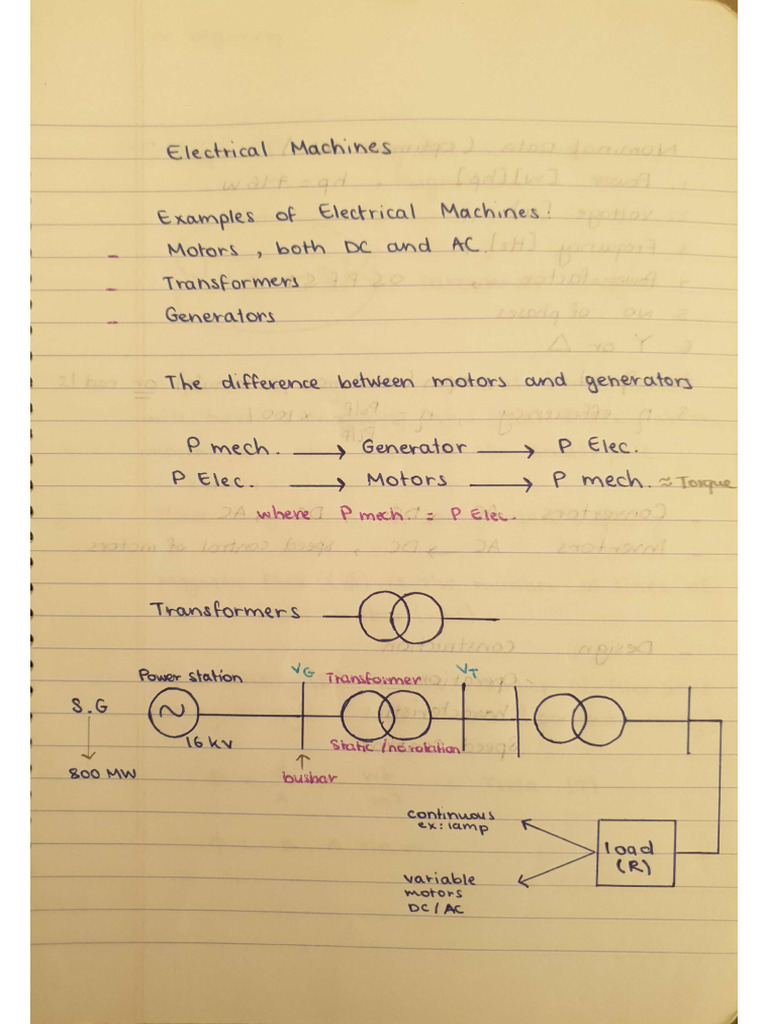 Electrical Machines
Examples of Electrical Machines:
- Motors, both DC and AC.
- Transformers
- Generators
The difference between motors and generators
P mech. → Generator → P Elec.
P Elec. → Motors → P mech. ≈ Torque
where P mech. = P Elec.
Transformers
Power station
VG
Transformer
VT
S.G
~
16 kv
Static / no rotation
800 MW
busbar
continuous
ex: lamp
load
(R)
variable
motors
DC / AC